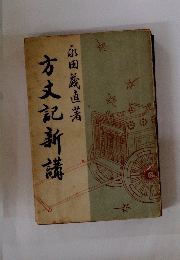 永田義直著
方丈記新講